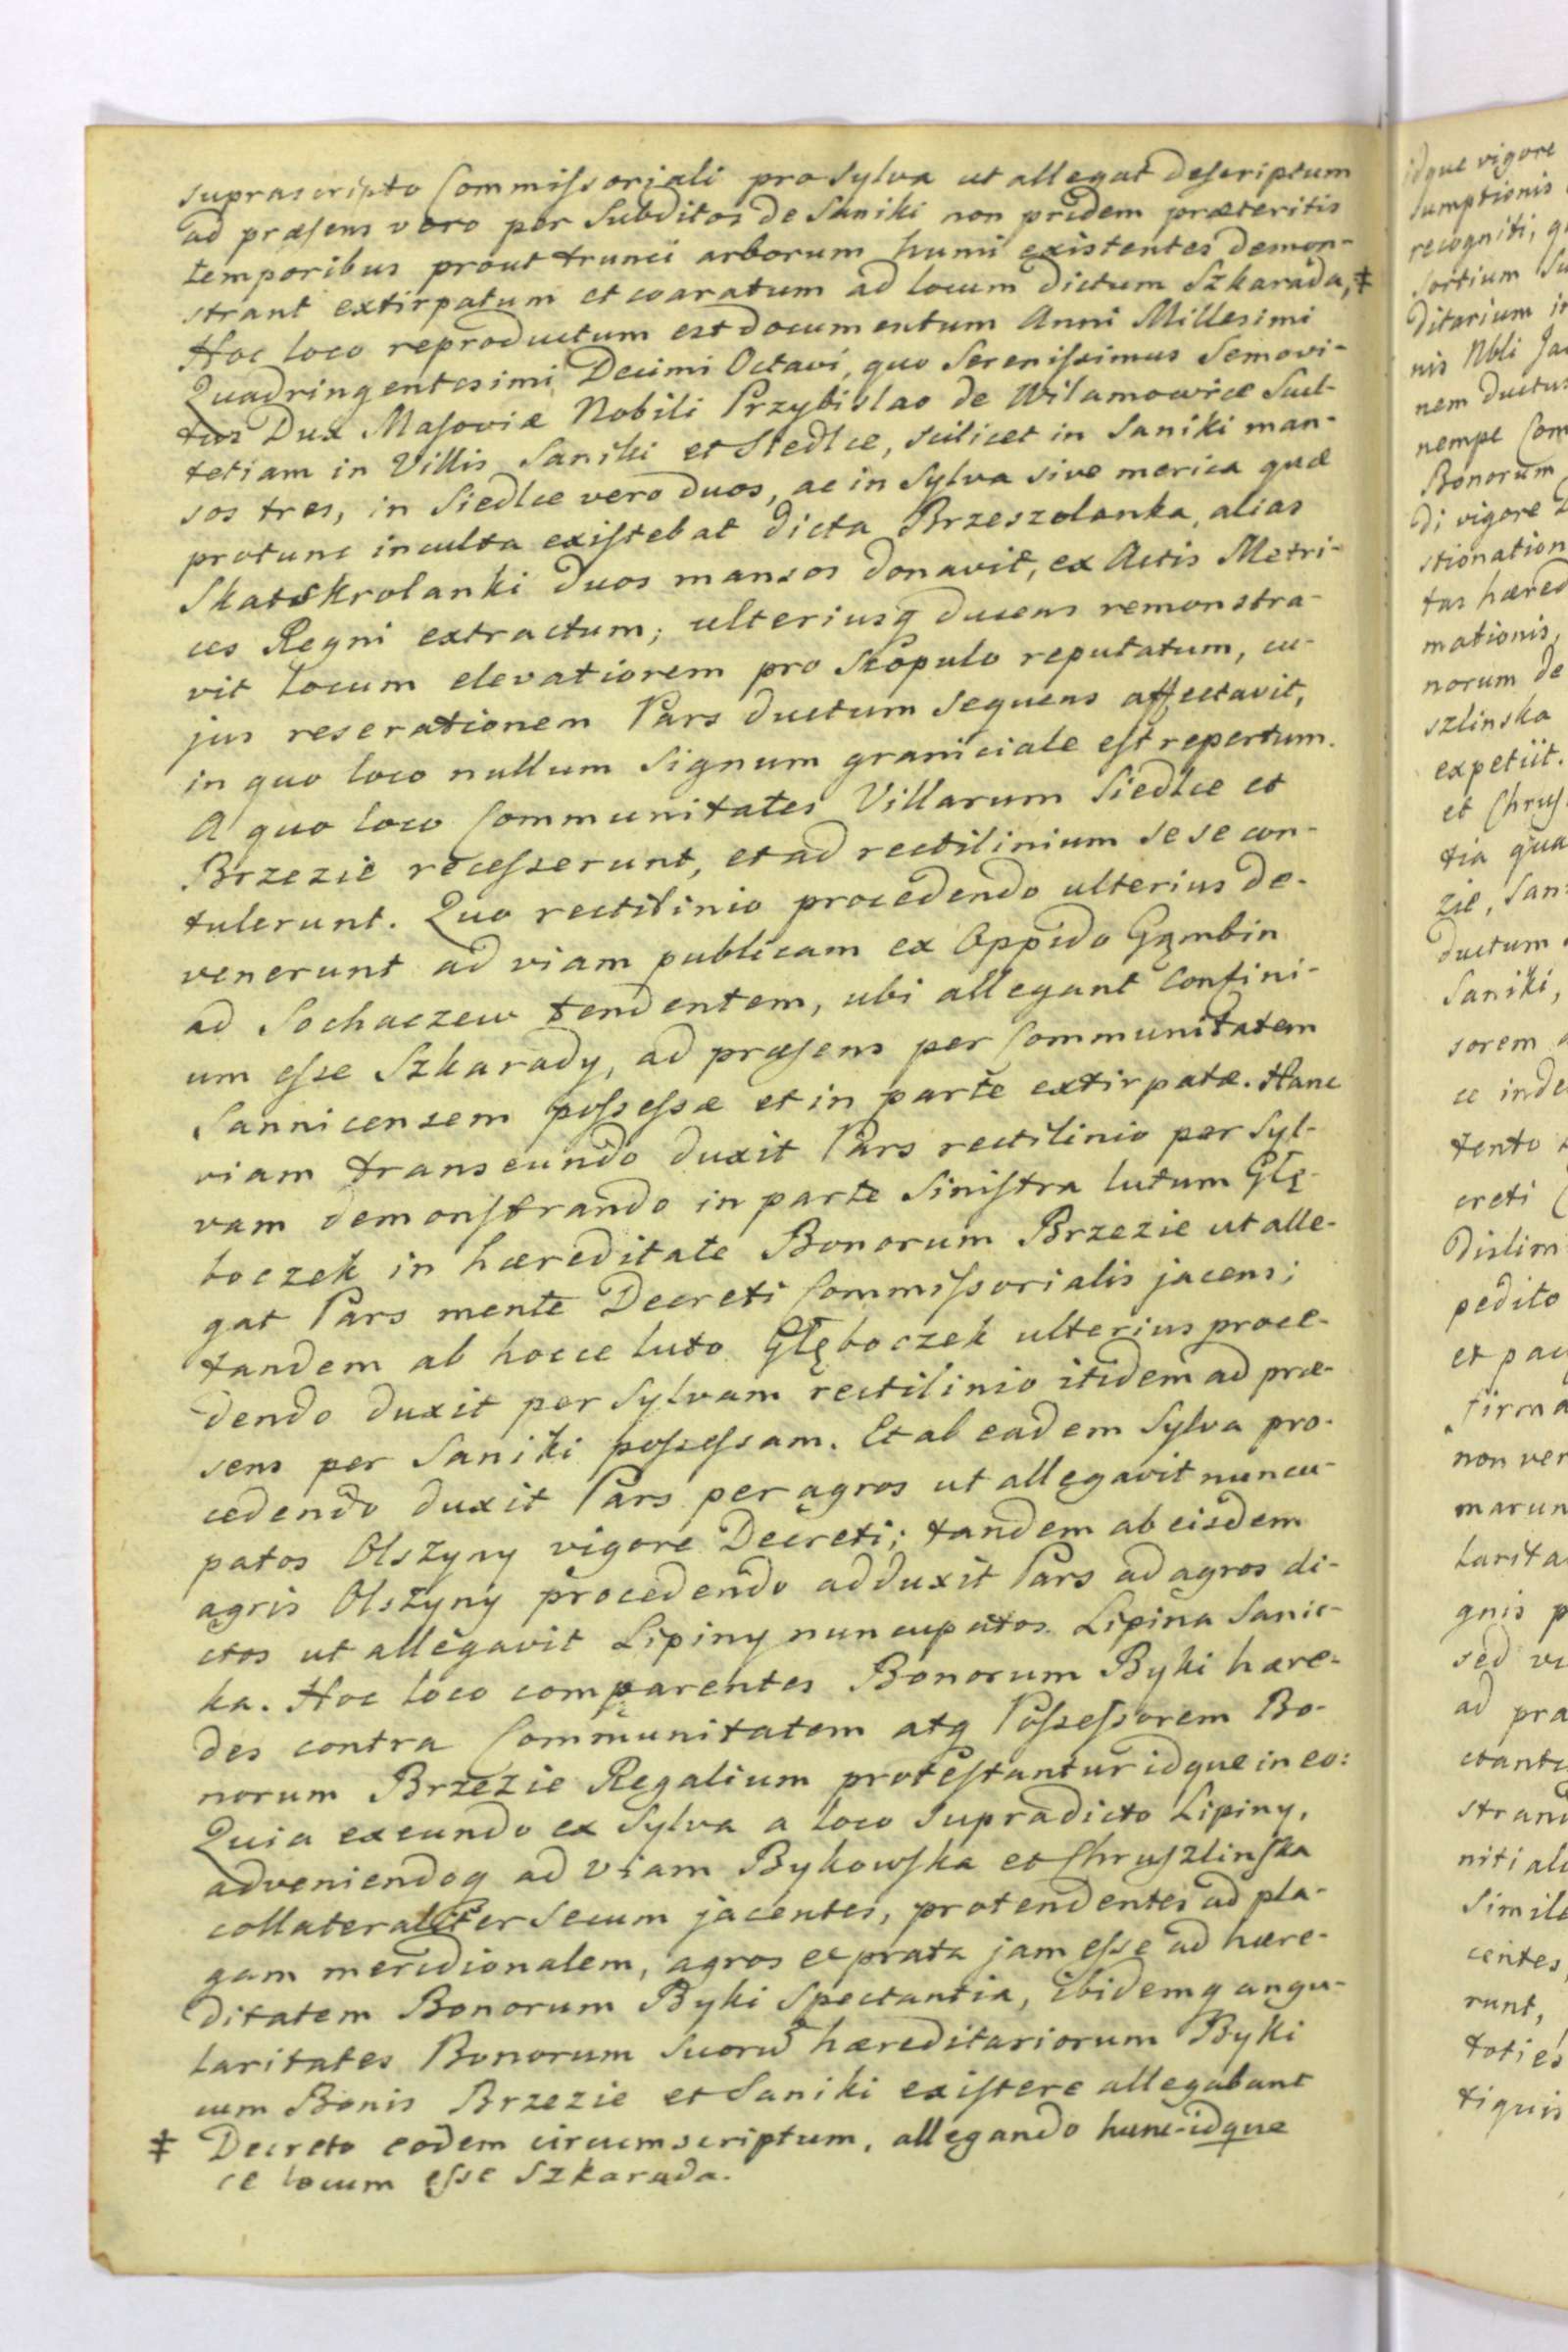 suprascripto Commissorjali pro Sylva ut allegat descriptum
ad præsens vero per Subditos de Saniki non pridem præteritis
temporibus prout trunci arborum humi existentes demon-
strant extirpatum et coaratum ad locum dictum Szkarada,‡
Hoc loco reproductum est documentum Anni Millesimi
Quadringentesimi Decimi Octavi, quo Serenissimus Semovi-
tus Dux Masoviæ Nobili Przybislao de Wilamowice Scul-
tetiam in Villis Saniki et Siedlce, scilicet in Saniki man-
sos tres, in Siedlce vero duos, ac in Sylva sive merica quæ
protunc inculta existebat dicta Brzeszolanka, alias
Skatskrolanki duos mansos donavit, ex Actis Metri-
ces Regni extractum; ulteriusq ducens remonstra-
vit locum elevatiorem pro Scopulo reputatum, cu-
jus reserationem Pars ductum sequens affectavit,
in quo loco nullum signum graniciale est repertum.
A quo loco Communitates Villarum Siedlce et
Brzezie recesserunt, et ad rectilinium se se con-
tulerunt. Quo rectilinio procedendo ulterius de-
venerunt ad viam publicam ex Oppido Gąmbin
ad Sochaczew tendentem, ubi allegant Confini-
um esse Szkarady, ad præsens per Communitatem
Sannicensem possessæ et in parte extirpatæ. Hanc
viam transeundo duxit Pars rectilinio per Syl-
vam demonstrando in parte sinistra lutum Głę-
boczek in hæreditate Bonorum Brzezie ut alle-
gat Pars mente Decreti Commissorialis jacens;
tandem ab hocce luto Głęboczek ulterius proce-
dendo duxit per Sylvam rectilinio itidem ad præ-
sens per Saniki possessam. Et ab eadem Sylva pro-
cedendo duxit Pars per agros ut allegavit nuncu-
patos Olszyny vigore Decreti; tandem ab eisdem
agris Olszyny procedendo adduxit Pars ad agros di-
ctos ut allegavit Lipiny nuncupatos Lipina Sanic-
ka. Hoc loco comparentes Bonorum Byki hære-
des contra Communitatem atq Possessorem Bo-
norum Brzezie Regalium protestantur idque in eo:
Quia exeundo ex Sylva a loco supradicto Lipiny,
adveniendoq ad viam Bykowska et Chruszlinska
collateraliter secum jacentes, protendentes ad pla-
gam meridionalem, agros et prata jam esse ad hære-
ditatem Bonorum Byki Spectantia, ibidemq angu-
laritates Bonorum suorū hæreditariorum Byki
cum Bonis Brzezie et Saniki existere allegabant
‡ Decreto eodem circumscriptum, allegando hunc- idque
ce locum esse Szkarada.
idque vigore
sumptionis
recogniti,
sortium
ditarium
nis Nbli
nem ductus
nempe
Bonorum
di vigore
stionation
tas hæred
mationis,
norum de
szlinska
expetiit.
et Chrus
tia qua
zie, San
ductum
Saniki,
sorem
ce inde
tento
creti
Dislim
pedito
et pac
firma
non ver
marun
larita
gnis p
sed
ad pra
ctantu
stran
niti ali
Simile
centes
runt,
toties
tiquis